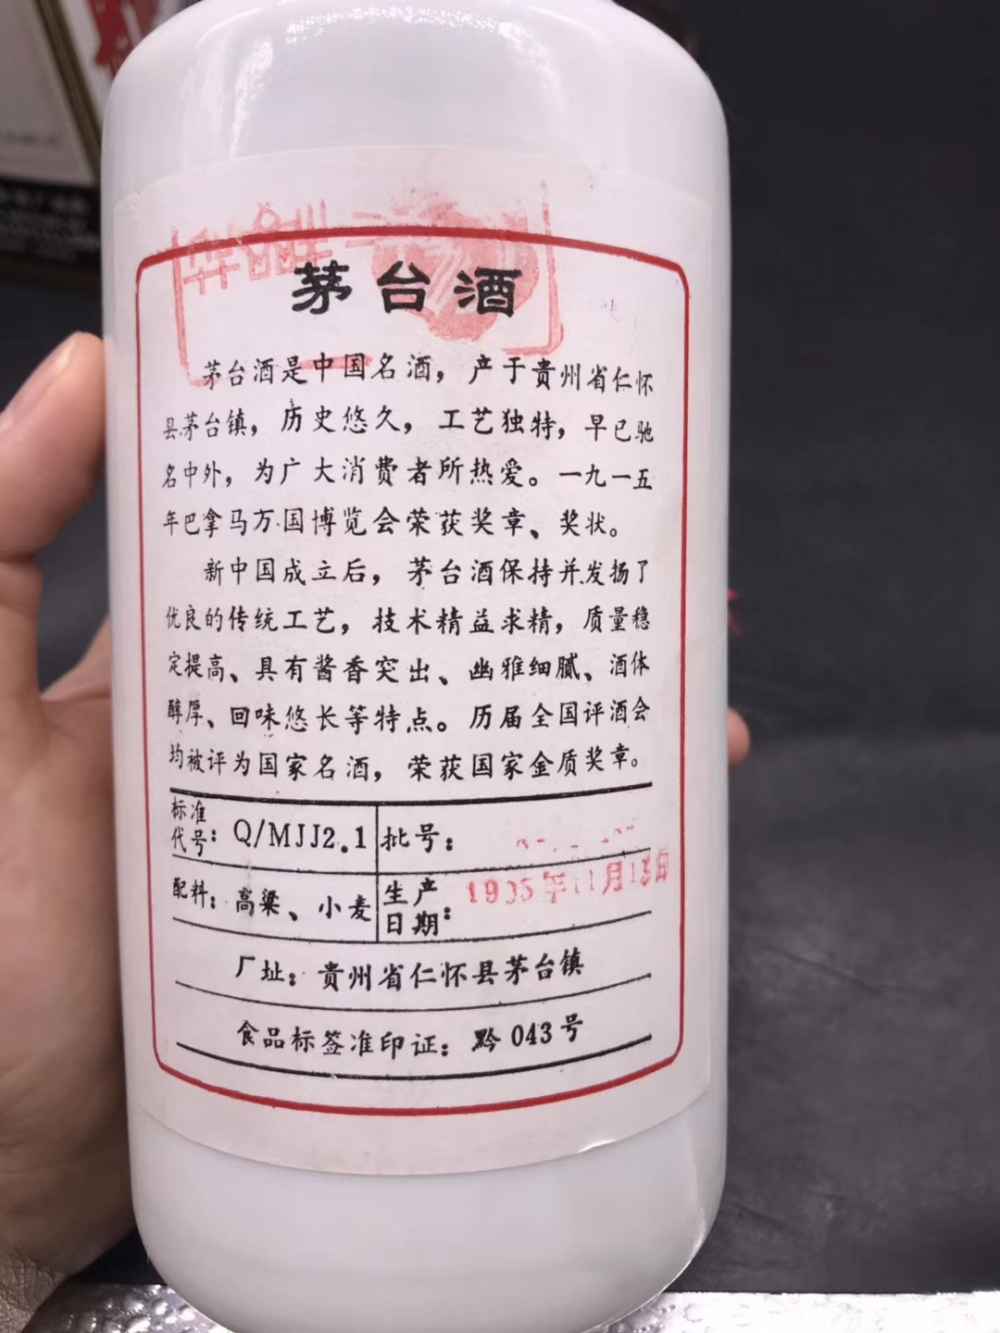 茅台酒
茅台酒是中国名酒，产于贵州省仁怀
县茅台镇，历史悠久，工艺独特，早已驰
名中外，为广大消费者所热爱。一九一五
年巴拿马万国博览会荣获奖章、奖状。
新中国成立后，茅台酒保持并发扬了
优良的传统工艺，技术精益求精，质量稳
定提高、具有酱香突出、幽雅细腻、酒体
醇厚、回味悠长等特点。历届全国评酒会
均被评为国家名酒，荣获国家金质奖章。
标准代号：Q/MJJ2.1 批号：
配料：高粱、小麦 生产日期：1995年11月13日
厂址：贵州省仁怀县茅台镇
食品标签准印证：黔043号